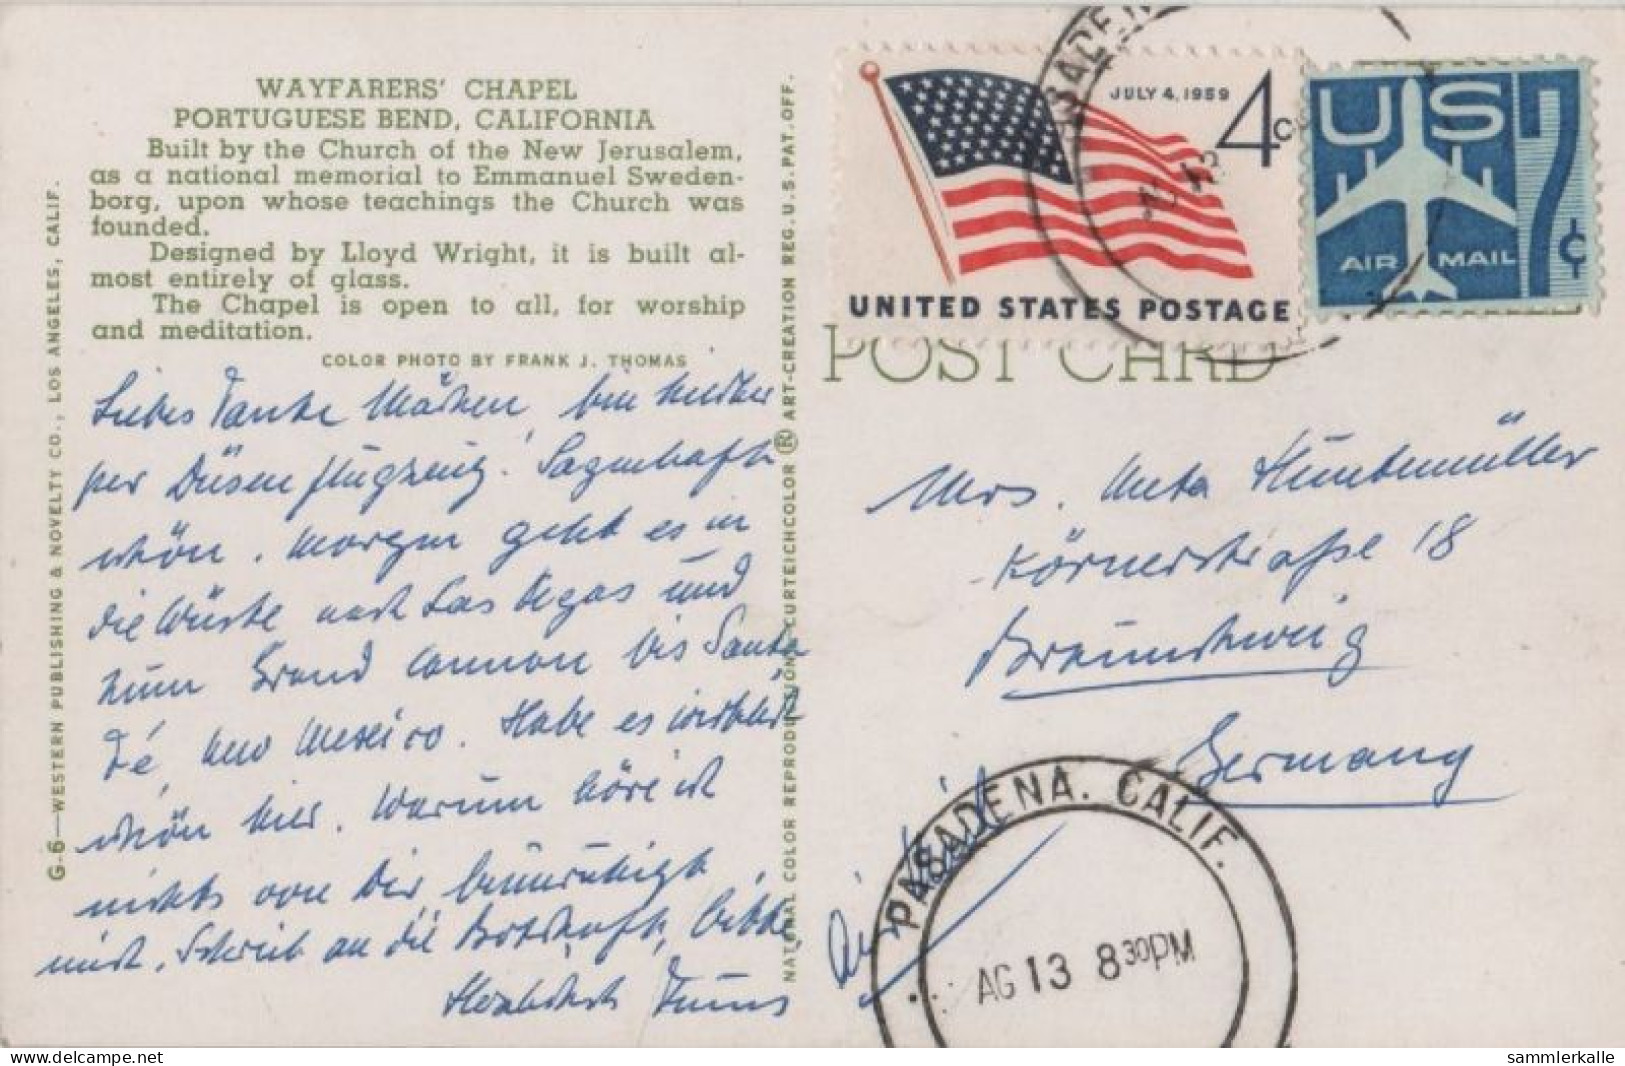 WAYFARERS' CHAPEL
PORTUGUESE BEND, CALIFORNIA
Built by the Church of the New Jerusalem,
as a national memorial to Emmanuel Sweden-
borg, upon whose teachings the Church was
founded.
Designed by Lloyd Wright, it is built al-
most entirely of glass.
The Chapel is open to all, for worship
and meditation.
COLOR PHOTO BY FRANK J. THOMAS
G-6—WESTERN PUBLISHING & NOVELTY CO., LOS ANGELES, CALIF.
Liebes Tante bin
per Düsenflugzeug! Sagenhaft
schön. Morgen geht es in
die Wüste nach Las Vegas und
zum Grand Cannon bis Santa
Fé, New Mexico. Habe es wirklich
schön hier. Warum höre ich
nichts von Dir, beunruhigt
mich. Schreib an die Botschaft, bitte,
Herzlichst
NATIONAL COLOR REPRODUCTION CURTEICHCOLOR ® ART-CREATION REG. U.S. PAT. OFF.
JULY 4, 1959
4c
UNITED STATES POSTAGE
US
7c
AIR MAIL
POST CARD
Mrs. Meta Hüntemüller
Körnerstraße 18
Braunschweig
Germany
PASADENA. CALIF.
AG 13 8 30PM
www.delcampe.net
sammlerkalle